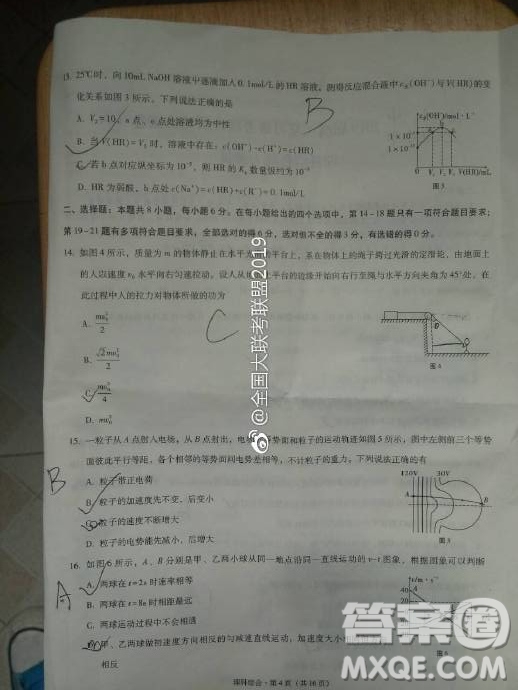 13. 25℃时，向10mL NaOH 溶液中逐滴加入0.1mol/L的HR溶液，测得反应混合液中c水(OH⁻)与V(HR)的变
化关系如图3所示，下列说法正确的是
A. V₂=10，a点、c点处溶液均为中性
B. 当V(HR)=V₂时，溶液中存在：c(OH⁻)-c(H⁺)=c(HR)
C. 若b点对应纵坐标为10⁻⁵，则HR的Kₐ数量级约为10⁻⁵
D. HR为弱酸，b点处c(Na⁺)=c(HR)+c(R⁻)=0.1mol/L
B
c水(OH⁻)/mol·L⁻¹
V₁ V₂ V₃ V(HR)/mL
图3
二、选择题：本题共8小题，每小题6分。在每小题给出的四个选项中，第14~18题只有一项符合题目要求；
第19~21题有多项符合题目要求。全部选对的得6分，选对但不全的得3分，有选错的得0分。
14. 如图4所示，质量为m的物体静止在水平光滑的平台上，系在物体上的绳子跨过光滑的定滑轮，由地面上
的人以速度v₀水平向右匀速拉动，设人从地面上平台的边缘开始向右行至绳与水平方向夹角为45°处，在
此过程中人的拉力对物体所做的功为
A. mv₀²/2
B. √2mv₀²/2
C. mv₀²/4
D. mv₀²
C
图4
15. 一粒子从A点射入电场，从B点射出，电场的等势面和粒子的运动轨迹如图5所示，图中左侧前三个等势
面彼此平行等距，各个相邻的等势面间电势差相等，不计粒子的重力。下列说法正确的有
A. 粒子带正电荷
B. 粒子的加速度先不变，后变小
C. 粒子的速度不断增大
D. 粒子的电势能先减小，后增大
B
30V
A
B
图5
16. 如图6所示，A、B分别是甲、乙两小球从同一地点沿同一直线运动的v-t图象，根据图象可以判断
A. 两球在t=2s时速率相等
B. 两球在t=8s时相距最远
C. 两球运动过程中不会相遇
D. 甲、乙两球做初速度方向相反的匀减速直线运动，加速度大小相同
相反
A
v/m·s⁻¹
40
图6
理科综合·第4页（共16页）
@全国大联考联盟2019
答案圈
MXQE.COM